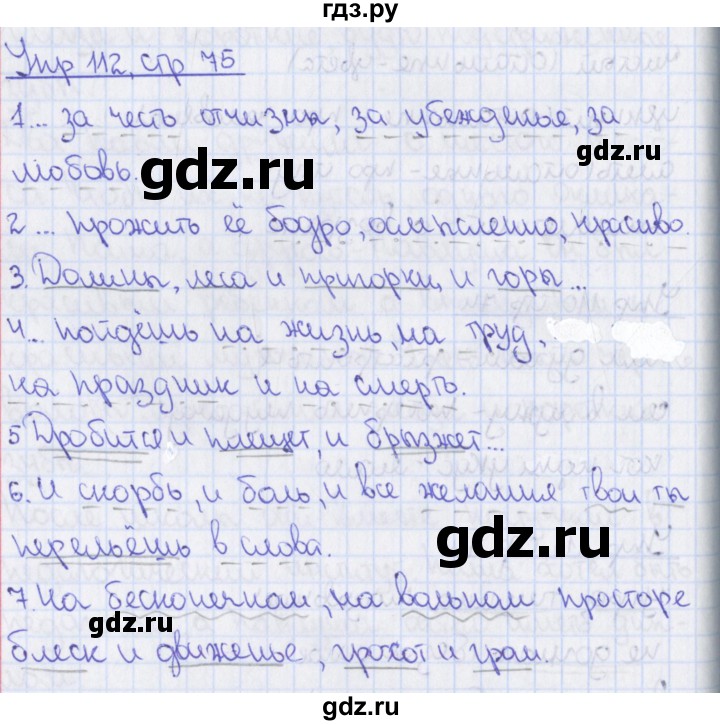 гдз.ру
Упр 112, стр 75
1... за честь отчизны, за убежденье, за
любовь.
gdz.ru
gdz.ru
2 ... прожить её бодро, осмысленно, красиво.
3. Долины, леса и пригорки, и горы...
4... пойдёшь на жизнь, на труд,
на праздник и на смерть.
5 Дробится и плещет, и брызжет...
6. И скорбь, и боль, и все желания твои ты
перельёшь в слова.
gdz.ru
7. На бесконечном, на вольном просторе
gdz.ru
блеск и движенье, грохот и гром.
gdz.ru